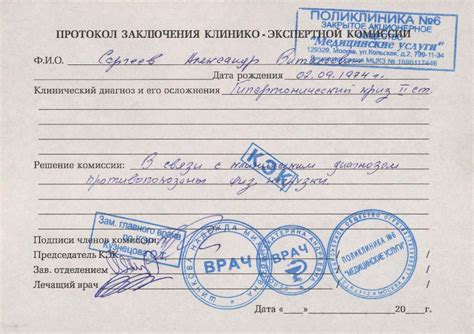 ПОЛИКЛИНИКА №6
ЗАКРЫТОЕ АКЦИОНЕРНОЕ
ОБЩЕСТВО
"Медицинские услуги"
129939, Москва, ул.Кольская, д.2, 799-11-34
ПРОТОКОЛ ЗАКЛЮЧЕНИЯ КЛИНИКО - ЭКСПЕРТНОЙ КОМИССИИ
Ф.И.О. Сергеев Александр
Дата рождения 02.09.1974 г.
Клинический диагноз и его осложнения Гипертонический криз II ст.
КЭК
Решение комиссии: В связи с клиническим диагнозом
противопоказаны физ. нагрузки.
Зам. главного врача
по КЭР
Кузнецова
Подписи членов комиссии:
Председатель КЭК
Зав. отделением
Лечащий врач
ВРАЧ
ШИШКОВА НАДЕЖДА
ВРАЧ
ЕКАТЕРИНА АНДРЕЕВНА
ПОЛИКЛИНИКА №6
"МЕДИЦИНСКИЕ УСЛУГИ"
МОСКВА
Дата 20 г.